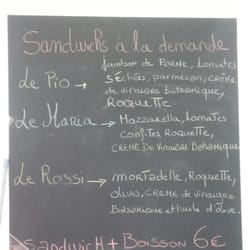 Sandwichs à la demande
Jambon de PARME, tomates
Le Pio → séchées, parmesan, crème
de vinaigre Balsamique,
ROQUETTE
Le Maria → Mozzarella, tomates
confites Roquette,
CREME De Vinaigre Balsamique
Le Rossi → mortadelle, Roquette,
olives, creme de vinaigre
Balsamique et huile d'olive.
Sandwich + Boisson 6€